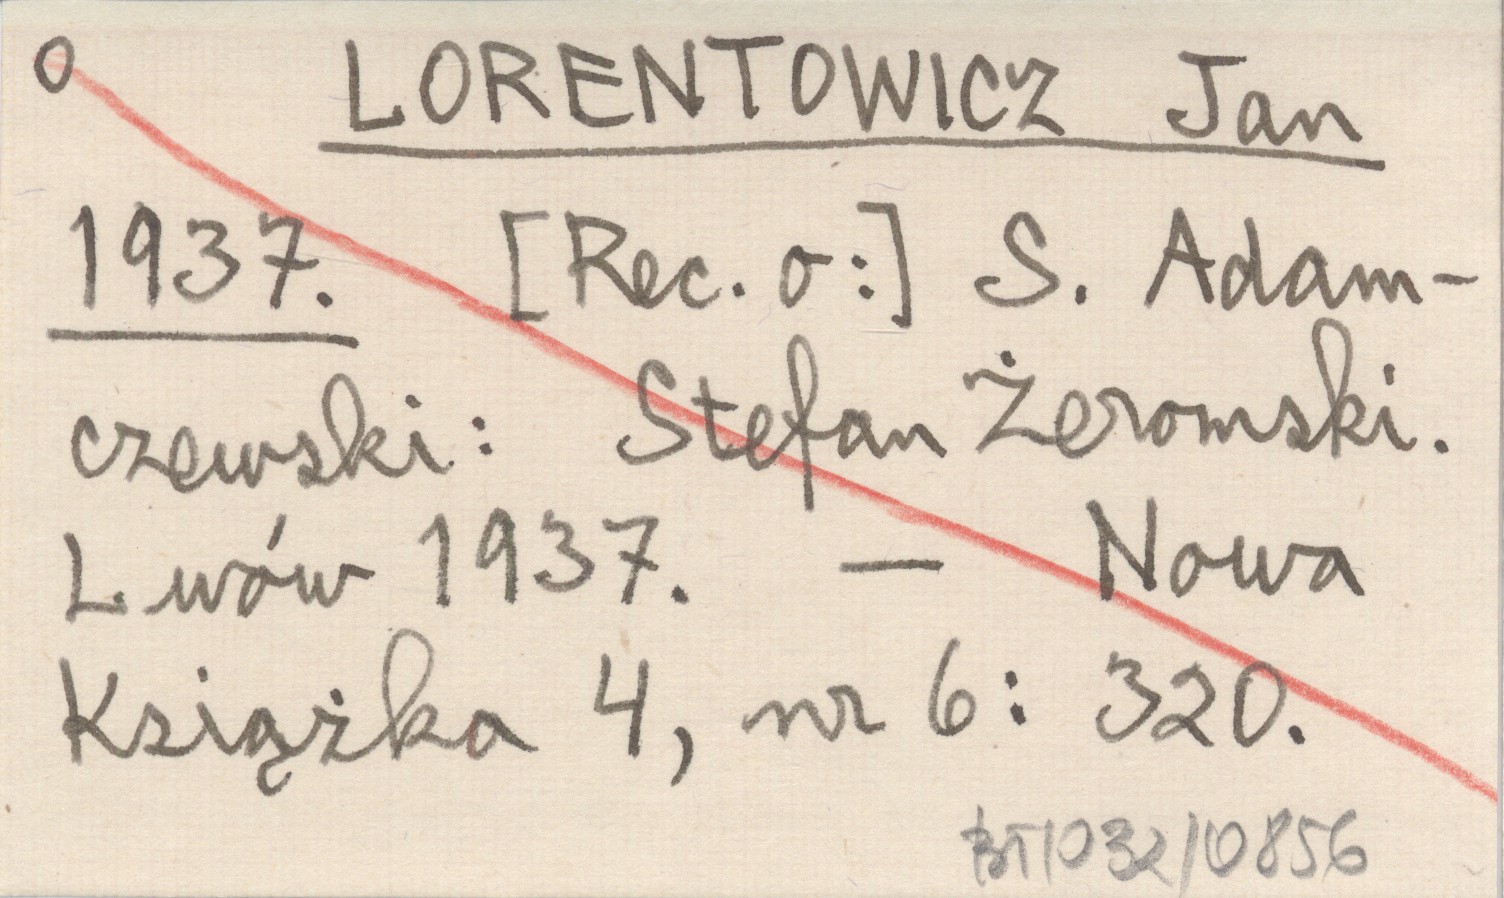 0 LORENTOWICZ Jan
1937. [Rec. o:] S. Adam-
czewski: Stefan Żeromski.
Lwów 1937. — Nowa
Książka 4, nr 6: 320.
BT/032/0856